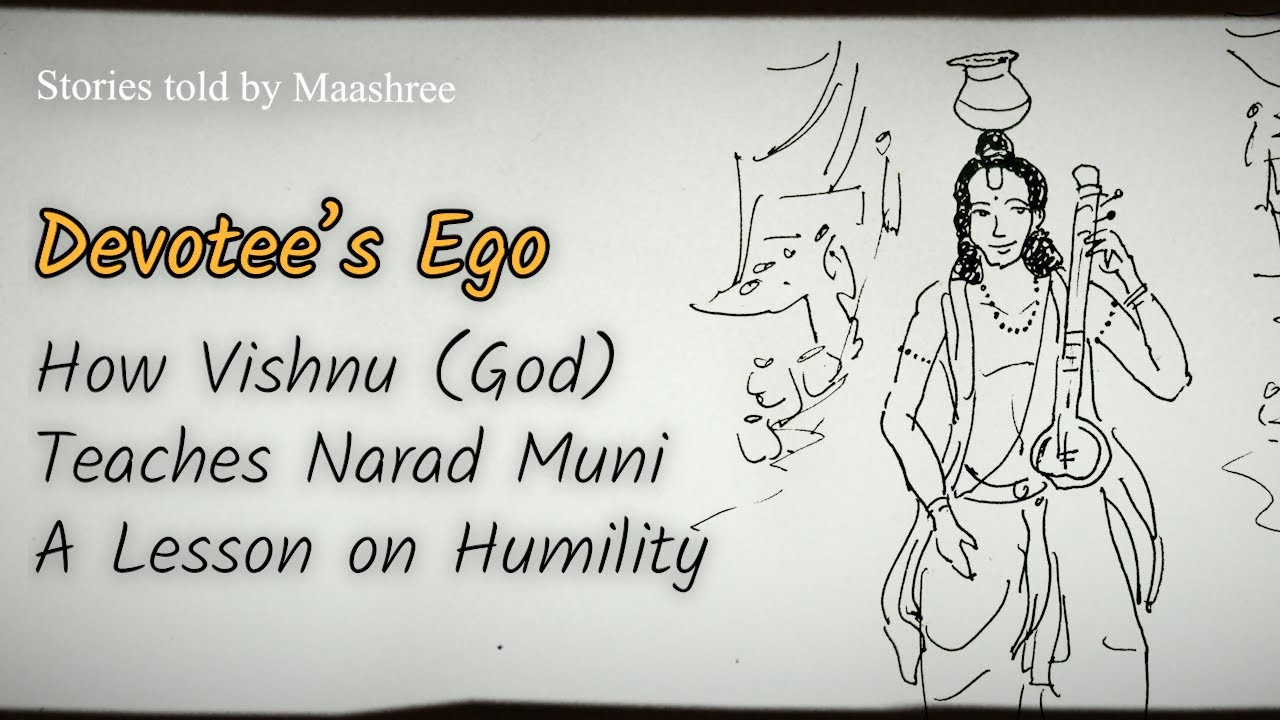 Stories told by Maashree
Devotee's Ego
How Vishnu (God)
Teaches Narad Muni
A Lesson on Humility